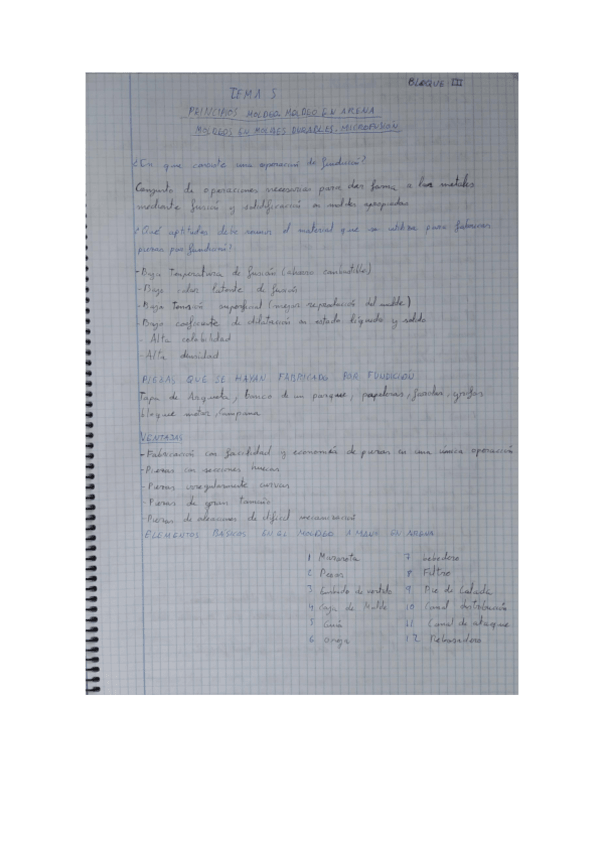 BLOQUE III
TEMA 5
PRINCIPIOS MOLDEO MOLDEO EN ARENA
MOLDEOS EN MOLDES DURABLES. MICROFUSIÓN
¿En que consiste una operación de fundición?
Conjunto de operaciones necesarias para dar forma a los metales
mediante fusión y solidificación en moldes apropiados
¿Qué aptitudes debe reunir el material que se utilice para fabricar
piezas por fundición?
- Baja Temperatura de fusión (ahorro combustible)
- Bajo calor latente de fusión
- Baja Tensión superficial (mejor reproducción del molde)
- Bajo coeficiente de dilatación en estado líquido y solido
- Alta colabilidad
- Alta densidad
PIEZAS QUE SE HAYAN FABRICADO POR FUNDICIÓN
Tapa de Arqueta, banco de un parque, papeleras, farolas, grifos
bloque motor, Campana
VENTAJAS
- Fabricación con facilidad y economía de piezas en una única operación
- Piezas con secciones huecas
- Piezas curvas
- Piezas de gran tamaño
- Piezas de aleaciones de dificil mecanización
ELEMENTOS BASICOS EN EL MOLDEO A MANO EN ARENA
1 Mazarota
2 Pesos
3 Embudo de vertido
4 Caja de Molde
5 Guia
6 Oreja
7 bebedero
8 Filtro
9 Pie de Colada
10 Canal distribución
11 Canal de ataque
12 Rebosadero